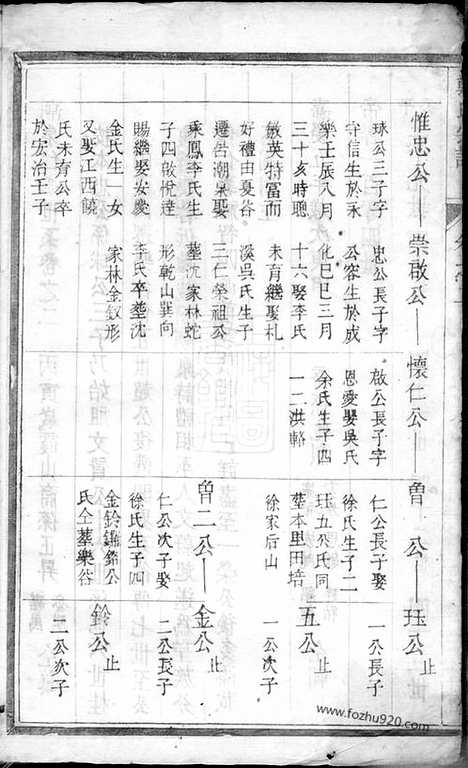 惟忠公——崇啟公——懷仁公——魯 公——珏公止
球公三子字
守信生於永
樂壬辰八月
三十亥時聰
敏英特富而
好禮由夏谷
遷呂潮泉娶
乘鳳李氏生
子四啟悅達
賜繼娶安慶
金氏生一女
又娶江西饒
氏未育公卒
於宏治壬子
忠公長子字
公容生於成
化巳巳三月
十六娶李氏
未育繼娶札
溪吳氏生子
三仁榮祖公
墓沈家林蛇
形乾山巽向
李氏卒塟沈
家林金釵形
啟公長子字
恩愛娶吳氏
余氏生子四
一二洪輅
仁公長子娶
徐氏生子二
珏五公氏同
塟本里田培
徐家后山
一公長子
五公止
一公次子
曾二公——金公止
仁公次子娶
徐氏生子四
金鈴錦鎔公
氏仝墓樂谷
二公長子
鈴公止
二公次子
www.fozhu920.com